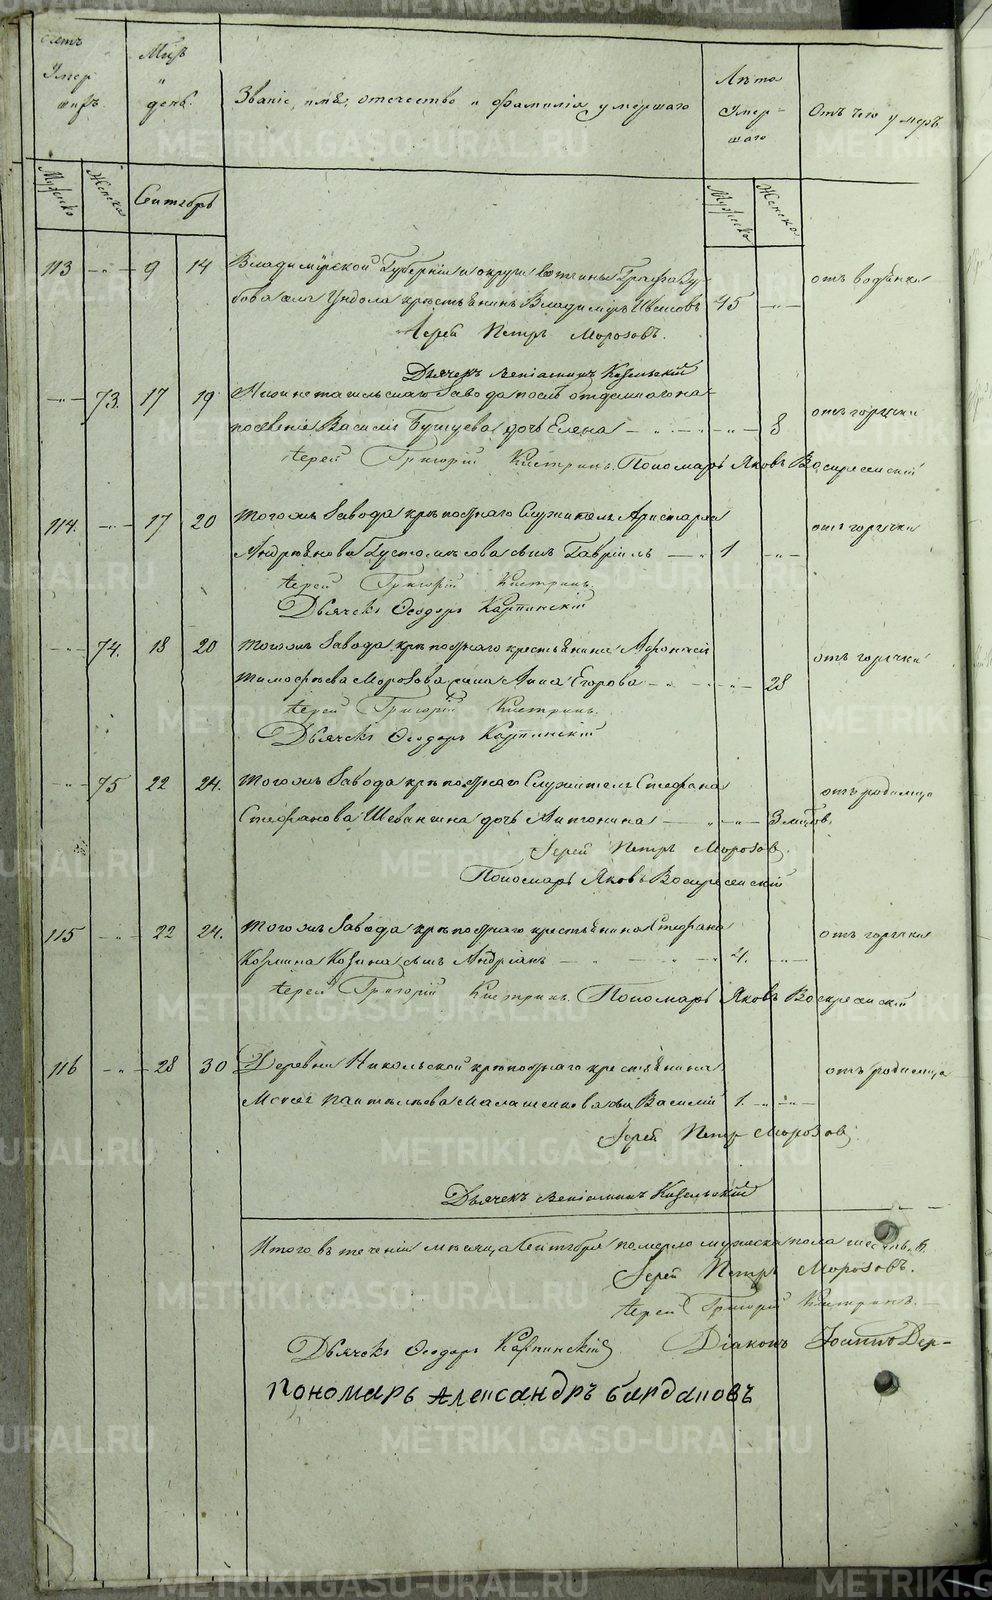 Счетъ Умер шихъ.
Мцъ и день.
Званіе, имя, отечество и фамилія умершаго
Лѣта Умер- шаго
Отъ чего умеръ
Мужеска
Женска
Сентябрь
Мужеска
Женска
113 - 9 14 Владимірской Губерніи и округи вотчины Графа Зу- отъ водянки
бова села Ундола крестьянинъ Владиміръ Ивановъ 45
Іерей Петръ Морозовъ.
Дьячекъ Веніаминъ Козельскій
73. 17 19 Нижнетагильскаго Завода послѣ отданнаго на отъ горячки
поселеніе Василія Бушуева дочь Елена 8
Іерей Григорій Кистринъ. Пономарь Яковъ Воскресенскій
114. 17 20 Того жъ Завода крѣпостнаго Служителя Аристарха отъ горячки
Андреянова Густомѣсова сынъ Гавріилъ 1
Іерей Григорій Кистринъ.
Дьячекъ Ѳеодоръ Карпинскій
74. 18 20 Того жъ Завода крѣпостнаго крестьянина отъ горячки
Тимофѣева Морозова жена Анна Егорова 28
Іерей Григорій Кистринъ.
Дьячекъ Ѳеодоръ Карпинскій
75 22 24. Того жъ Завода крѣпостнаго Служителя Стефана отъ родимца
Стефанова Шевангина дочь Антонина 3 мцов.
Іерей Петръ Морозов.
Пономарь Яковъ Воскресенскій
115 22 24. Того жъ Завода крѣпостнаго крестьянина Стефана отъ горячки
Козмина Козина сынъ Андріанъ 4.
Іерей Григорій Кистринъ. Пономарь Яковъ Воскресенскій
116 28 30 Деревни Никольской крѣпостнаго крестьянина отъ родимца
Мокея Пантелѣева Малашенкова сынъ Василій 1.
Іерей Петръ Морозов.
Дьячекъ Веніаминъ Козельскій
Итого въ теченіи мѣсяца Сентября померло мужеска пола шесть. 6.
Іерей Петръ Морозовъ.
Іерей Григорій Кистринъ.
Дьячекъ Ѳеодоръ Карпинскій Діаконъ Іоаннъ Дер-
Пономарь Александръ Бардановъ
METRIKI.GASO-URAL.RU